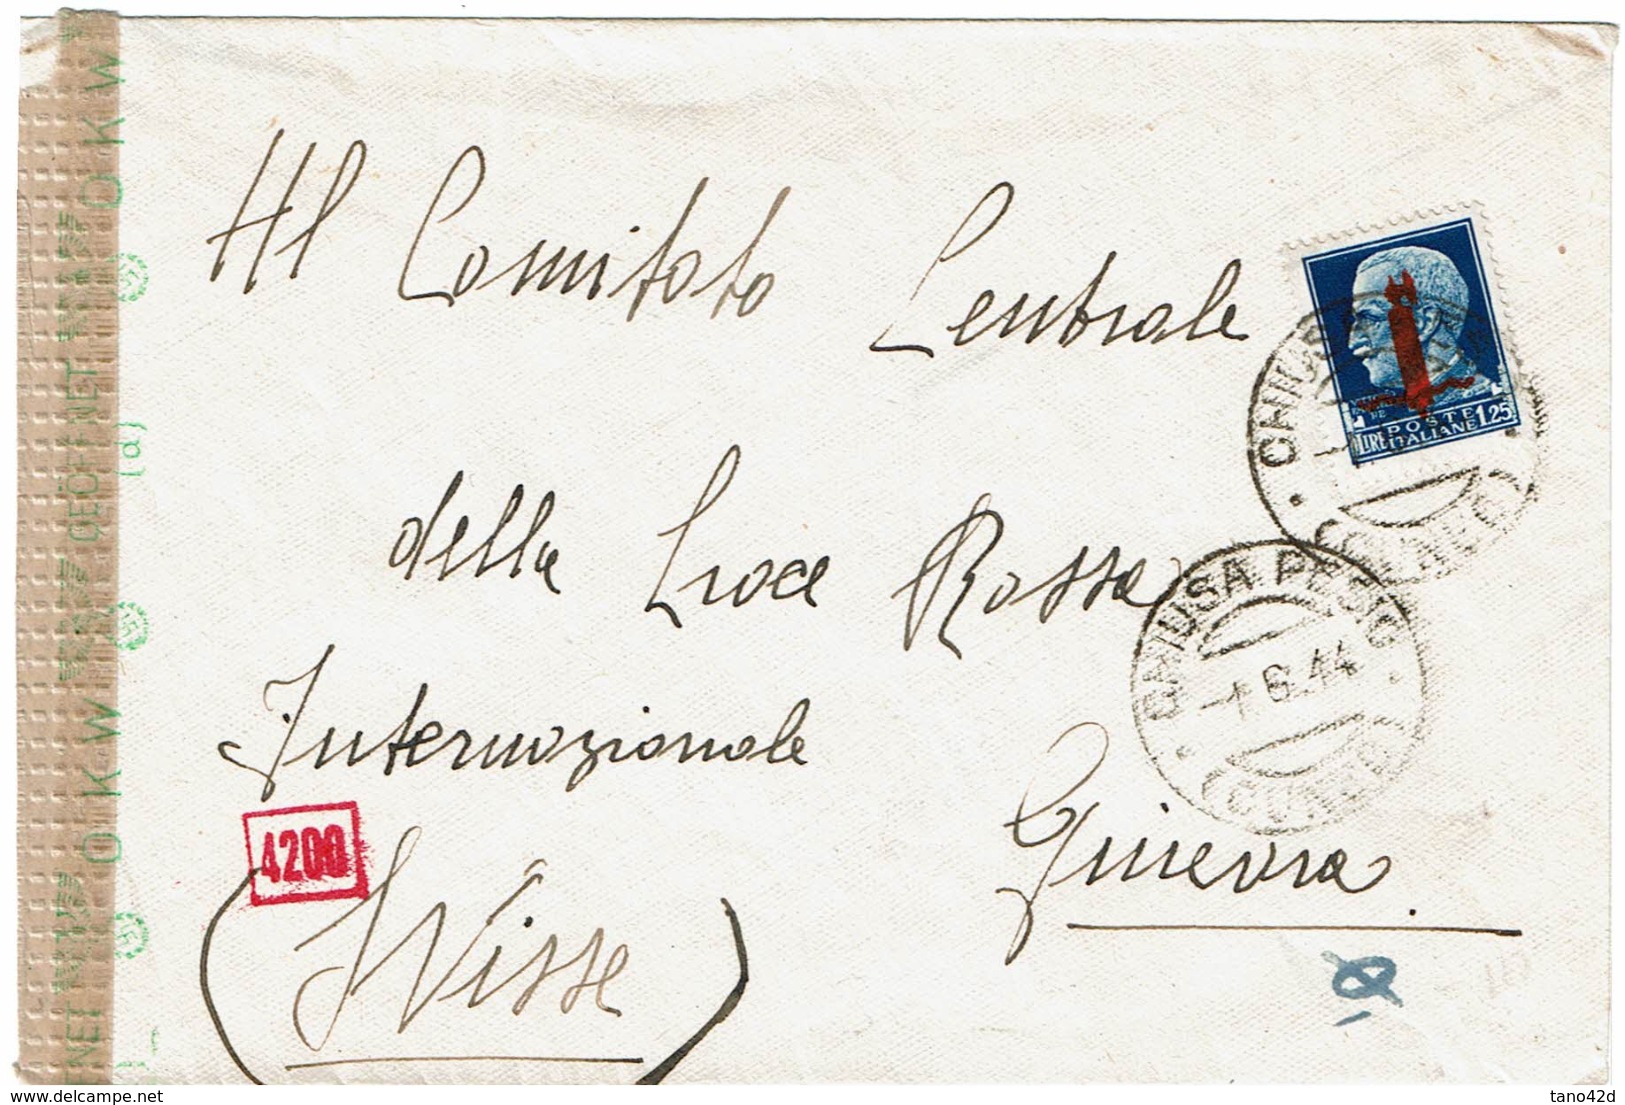 Al Comitato Centrale
della Croce Rossa
Internazionale
Ginevra.
(Svisse)
4200
POSTE
LIRE ITALIANE 1.25
CHIUSA
CHIUSA PESIO
-1.6.44
(CUNEO)
OKW
GEÖFFNET
(d)
OKW
NET
www.delcampe.net
tano42d